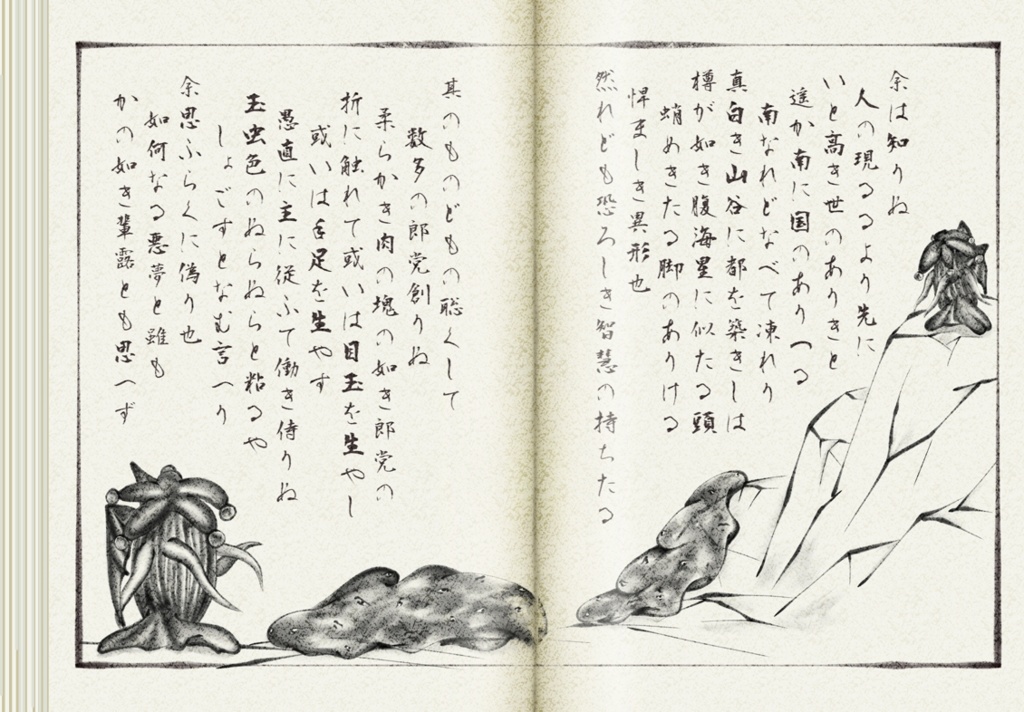 余は知りぬ
人の現るるより先に
いと高き世のありきと
遙か南に国のありつる
南なれどなべて凍れり
真白き山谷に都を築きしは
樽が如き腹海星に似たる頭
蛸めきたる脚のありける
悍ましき異形也
然れども恐ろしき智慧の持ちたる
其のものどもの聡くして
数多の郎党創りぬ
柔らかき肉の塊の如き郎党の
折に触れて或いは目玉を生やし
或いは手足を生やす
愚直に主に従ふて働き侍りぬ
玉虫色のぬらぬらと粘るや
しょごすとなむ言へり
余思ふらくに偽り也
如何なる悪夢と雖も
かの如き輩露とも思へず